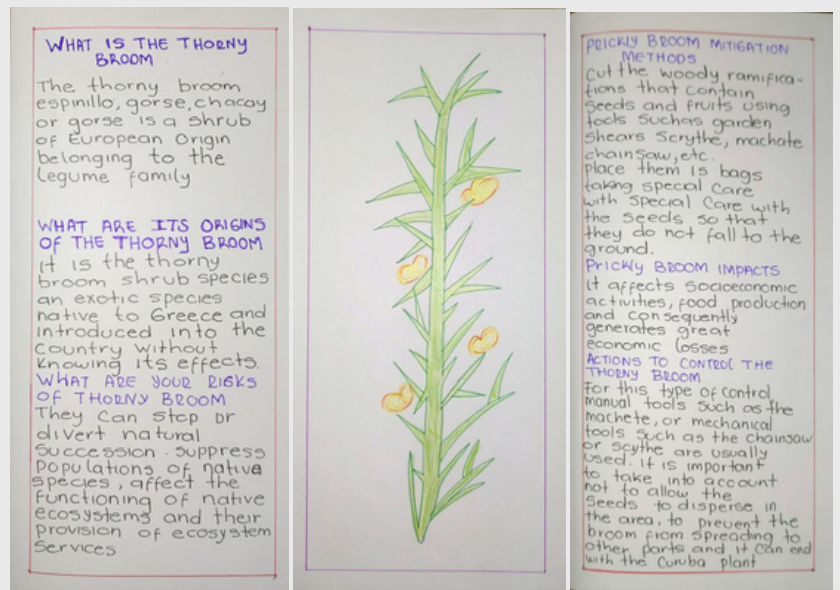 WHAT IS THE THORNY
BROOM
The thorny broom
espinillo, gorse, chacay
or gorse is a shrub
of European Origin
belonging to the
legume family
WHAT ARE ITS ORIGINS
OF THE THORNY BROOM
it is the thorny
broom shrub species
an exotic species
native to Greece and
introduced into the
country without
knowing its effects.
WHAT ARE YOUR RISKS
OF THORNY BROOM
They can stop or
divert natural
succession. suppress
populations of native
species, affect the
functioning of native
ecosystems and their
provision of ecosystem
services
PRICKLY BROOM MITIGATION
METHODS
Cut the woody ramifica-
tions that contain
seeds and fruits using
tools suchas garden
shears Scrythe, machate
chainsaw, etc.
Place them is bags
taking special care
with special care with
the seeds so that
they do not fall to the
ground.
Prickly BROOM IMPACTS
it affects socioeconomic
activities, food production
and consequently
generates great
economic losses
ACTIONS TO CONTROL THE
THORNY BROOM
For this type of control
manual tools such as the
machete, or mechanical
tools such as the chainsaw
or scythe are usually
used. it is important
to take into account
not to allow the
seeds to disperse in
the area, to prevent the
broom from spreading to
other parts and it can end
with the Curuba plant